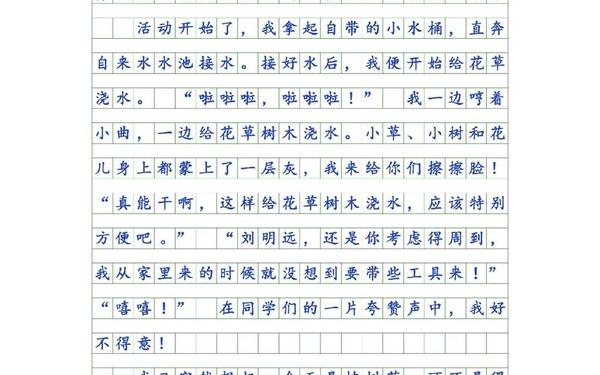 活动开始了，我拿起自带的小水桶，直奔
自来水水池接水。接好水后，我便开始给花草
浇水。 “啦啦啦，啦啦啦！” 我一边哼着
小曲，一边给花草树木浇水。小草、小树和花
儿身上都蒙上了一层灰，我来给你们擦擦脸！
“真能干啊，这样给花草树木浇水，应该特别
方便吧。” “刘明远，还是你考虑得周到，
我从家里来的时候就没想到要带些工具来！”
“嘻嘻！” 在同学们的一片夸赞声中，我好
不得意！